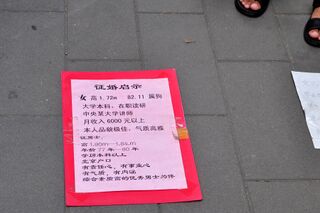 征婚启示
女 高1.72m 82.11 属狗
大学本科，在职读研
中央某大学讲师
月收入6000元以上
本人品貌极佳，气质高雅
征男士：
高1.80m—1.84m
年龄77年—80年
学历本科以上
北京户口
有责任心，有事业心
有气质，有内涵
综合素质高的优秀男士为伴